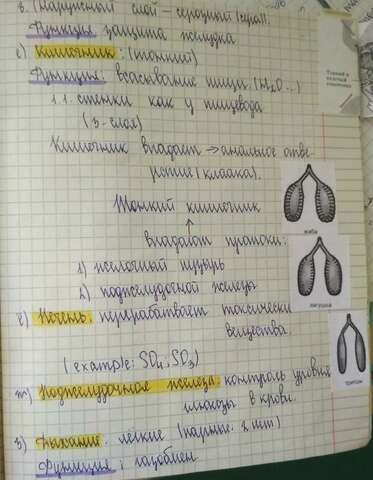 в. Наружный слой - серозный (
Функция защита желудка
е) Кишечник: (тонкий)
Функция: всасывание пищи. (H₂O ...)
1.1. стенки как у пищевода
(3-слоя)
Кишечник впадает → анальное отве-
рстие (клоака).
Тонкий кишечник
↑
впадают протоки:
1) желчный пузырь
2) поджелудочной железы
Печень: перерабатывает токсически
вещества
(example: SO₄; SO₃)
ж) Поджелудочная железа: контроль уровня
глюкозы в крови.
з) Дыхание: лёгкие (парные: 2 шт)
Функция: газобмен.
жаба
лягушка
тритон